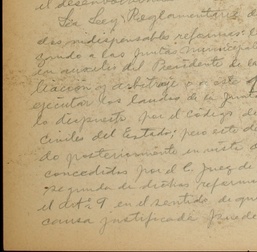 el desenvolvimiento
La Ley Reglamentaria d
dos indispensables reformas: l
a las Juntas Municipal
en auxilio del Presidente de la
liación y Arbitraje a este
ejecutar los laudos de la Junta
lo dispuesto por el Código de
Civiles del Estado; pero este de
do posteriormente en vista d
concedidos por el C. Juez de
segunda de dichas reformas
el Art. 9 en el sentido de que
causa justificada puede